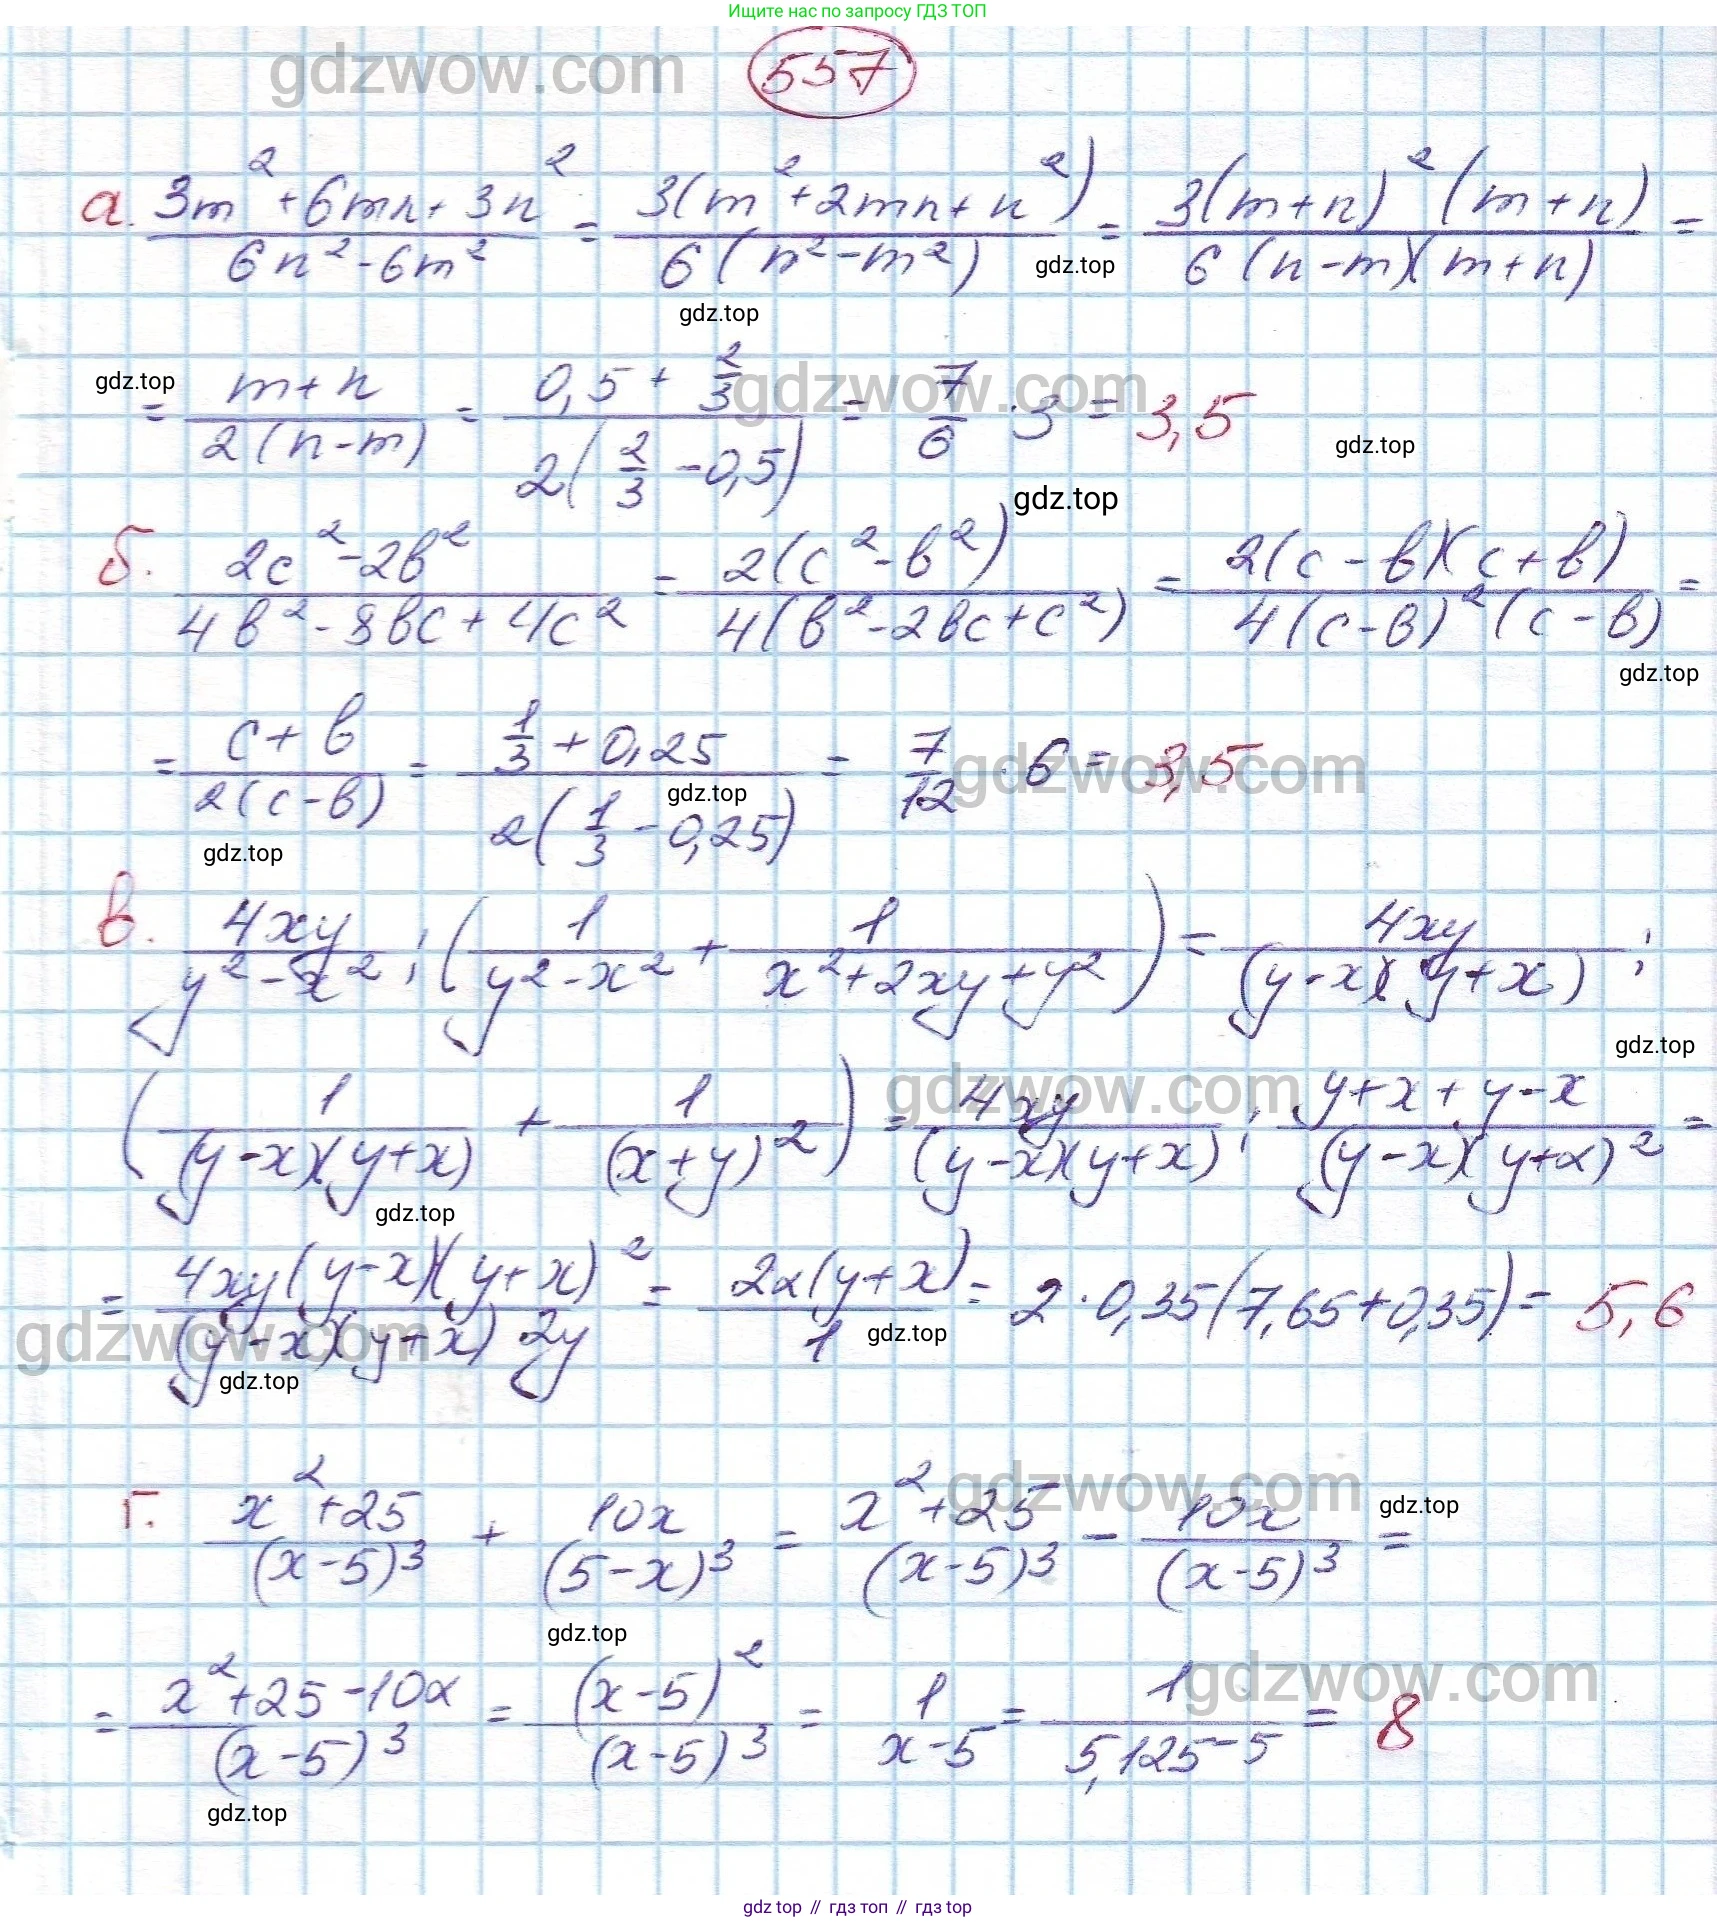 Ищите нас по запросу ГДЗ ТОП
gdzwow.com
557
а. (3m² + 6mn + 3n²)/(6n² - 6m²) = 3(m² + 2mn + n²)/(6(n² - m²)) = 3(m+n)²(m+n)/(6(n-m)(m+n)) =
gdz.top
gdz.top
gdz.top
gdzwow.com
= (m+n)/(2(n-m)) = (0,5 + 2/3)/(2(2/3 - 0,5)) = 7/6 · 3 = 3,5
gdz.top
gdz.top
б. (2c² - 2b²)/(4b² - 8bc + 4c²) = 2(c² - b²)/(4(b² - 2bc + c²)) = 2(c - b)(c + b)/(4(c-b)²(c-b)) =
gdz.top
= (c + b)/(2(c-b)) = (1/3 + 0,25)/(2(1/3 - 0,25)) = 7/12 · 6 = 3,5
gdzwow.com
gdz.top
gdz.top
в. 4xy/(y² - x²) : (1/(y² - x²) + 1/(x² + 2xy + y²)) = 4xy/((y-x)(y+x)) :
gdz.top
gdzwow.com
(1/((y-x)(y+x)) + 1/(x+y)²) = 4xy/((y-x)(y+x)) : (y+x+y-x)/((y-x)(y+x)²) =
gdz.top
= 4xy(y-x)(y+x)²/((y-x)(y+x) 2y) = 2x(y+x)/1 = 2 · 0,35(7,65+0,35) = 5,6
gdzwow.com
gdz.top
gdz.top
г. (x² + 25)/(x-5)³ + 10x/(5-x)³ = (x² + 25)/(x-5)³ - 10x/(x-5)³ =
gdzwow.com
gdz.top
gdz.top
= (x² + 25 - 10x)/(x-5)³ = (x-5)²/(x-5)³ = 1/(x-5) = 1/(5,125-5) = 8
gdzwow.com
gdz.top
gdz top // гдз топ // гдз top